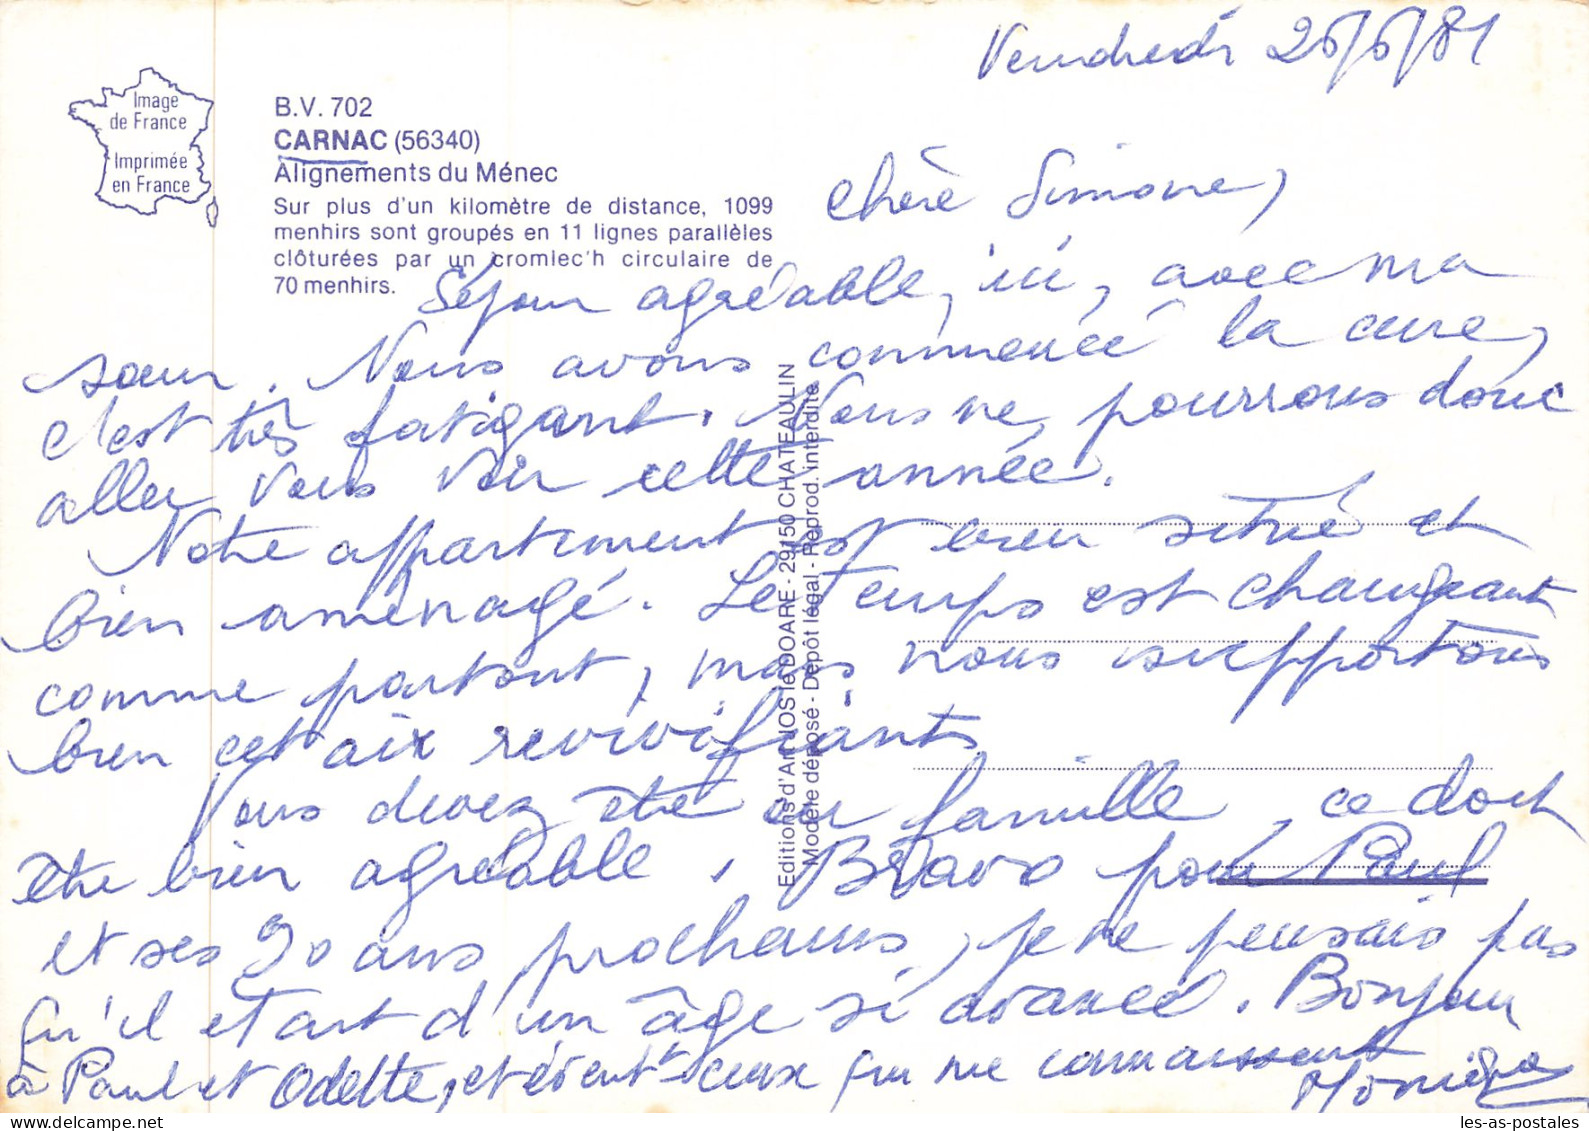 Vendredi 26/6/81
Image
de France
Imprimée
en France
B.V. 702
CARNAC (56340)
Alignements du Ménec
Sur plus d'un kilomètre de distance, 1099
menhirs sont groupés en 11 lignes parallèles
clôturées par un cromlec'h circulaire de
70 menhirs.
Chère Simone,
Séjour agréable, ici, avec ma
sœur. Nous avons commencé la cure,
c'est très fatigant. Nous ne pourrons donc
aller vous voir cette année.
Notre appartement est bien situé et
bien aménagé. Le temps est changeant
comme partout, mais nous supportons
bien cet air revivifiant
Vous devez être en famille, ce doit
être bien agréable. Bravo pour Paul
et ses 90 ans prochains, je ne pensais pas
qu'il était d'un âge si avancé. Bonjour
à Paul et Odette, et évent^t ceux qui me connaissent
Monique
Editions d'Art JOS le DOARE - 29150 CHATEAULIN
Modèle déposé - Dépôt légal - Reprod. interdite
les-as-postales